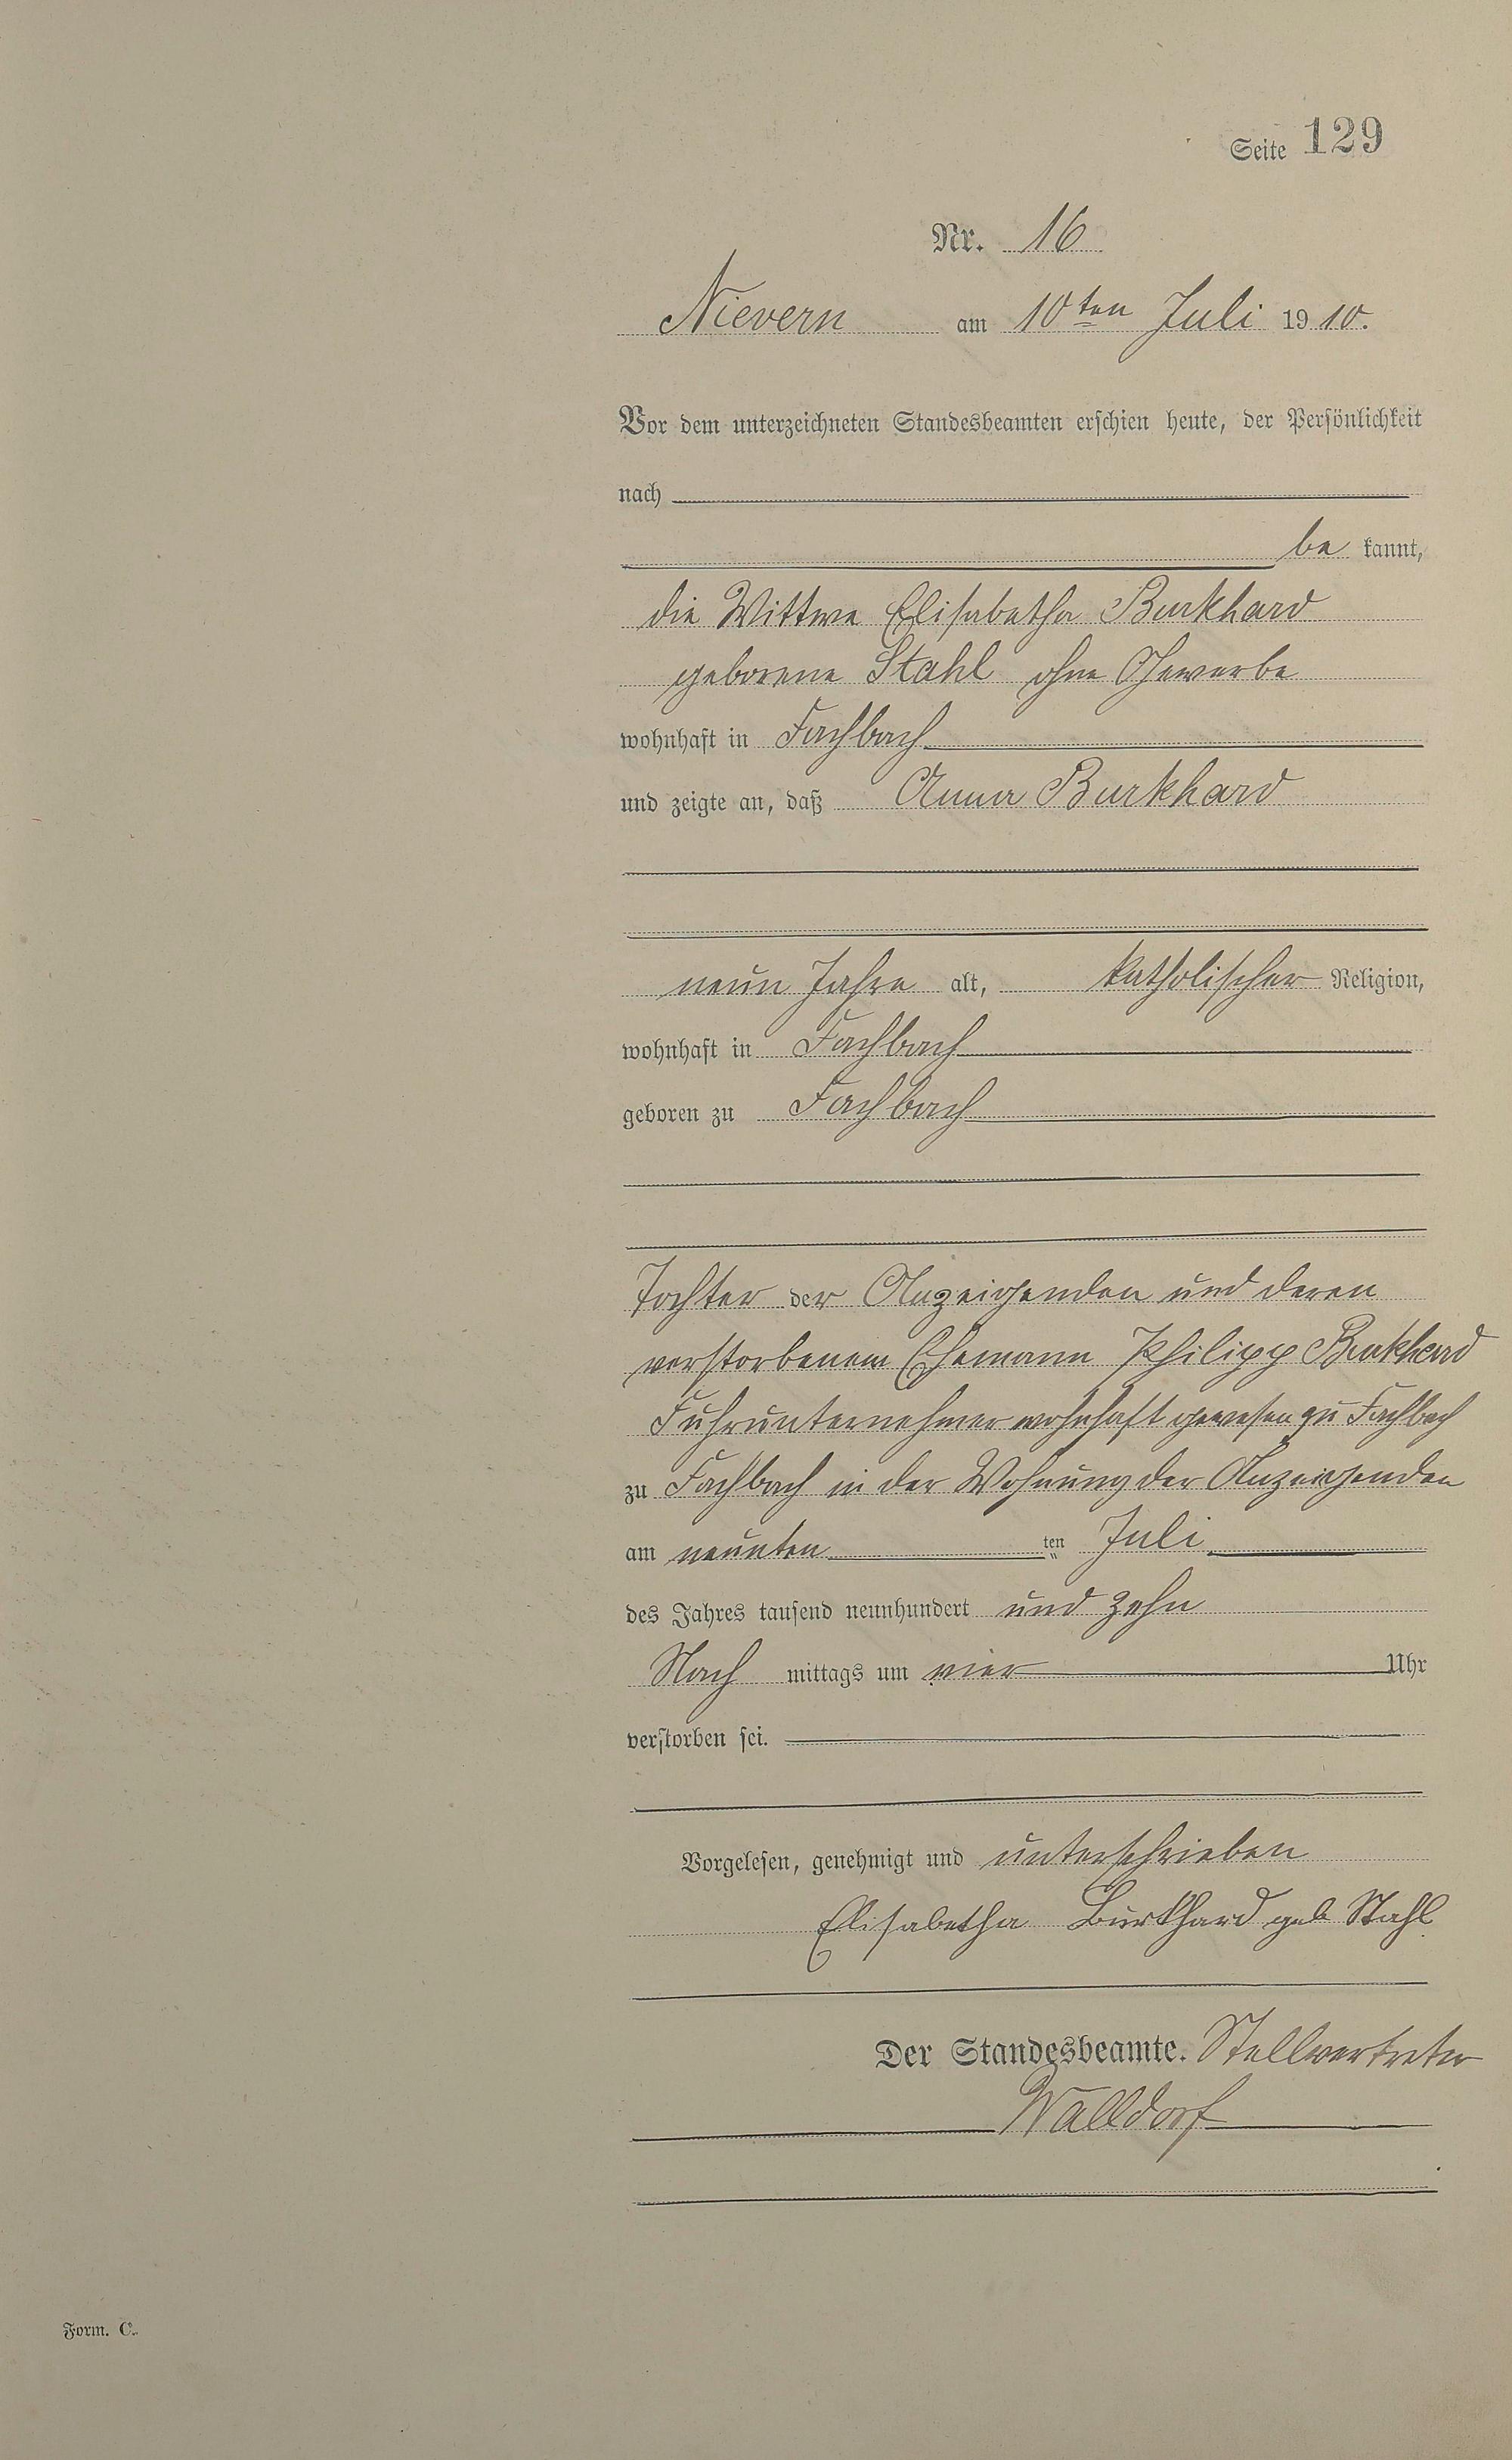 Seite 129
Nr. 16
Nievern am 10ten Juli 1910.
Vor dem unterzeichneten Standesbeamten erschien heute, der Persönlichkeit
nach
be kannt,
die Wittwe Elisabetha Burkhard
geborene Stahl ohne Gewerbe
wohnhaft in Fachbach
und zeigte an, daß Anna Burkhard
neun Jahre alt, katholischer Religion,
wohnhaft in Fachbach
geboren zu Fachbach
Tochter der Anzeigenden und deren
verstorbenem Ehemann Philipp Burkhard
Fuhrunternehmer wohnhaft gewesen zu Fachbach
zu Fachbach in der Wohnung der Anzeigenden
am neunten ten Juli
des Jahres tausend neunhundert und zehn
Nach mittags um vier Uhr
verstorben sei.
Vorgelesen, genehmigt und unterschrieben
Elisabetha Burkhard geb Stahl
Der Standesbeamte. Stellvertreter
Walldorf
Form. C.